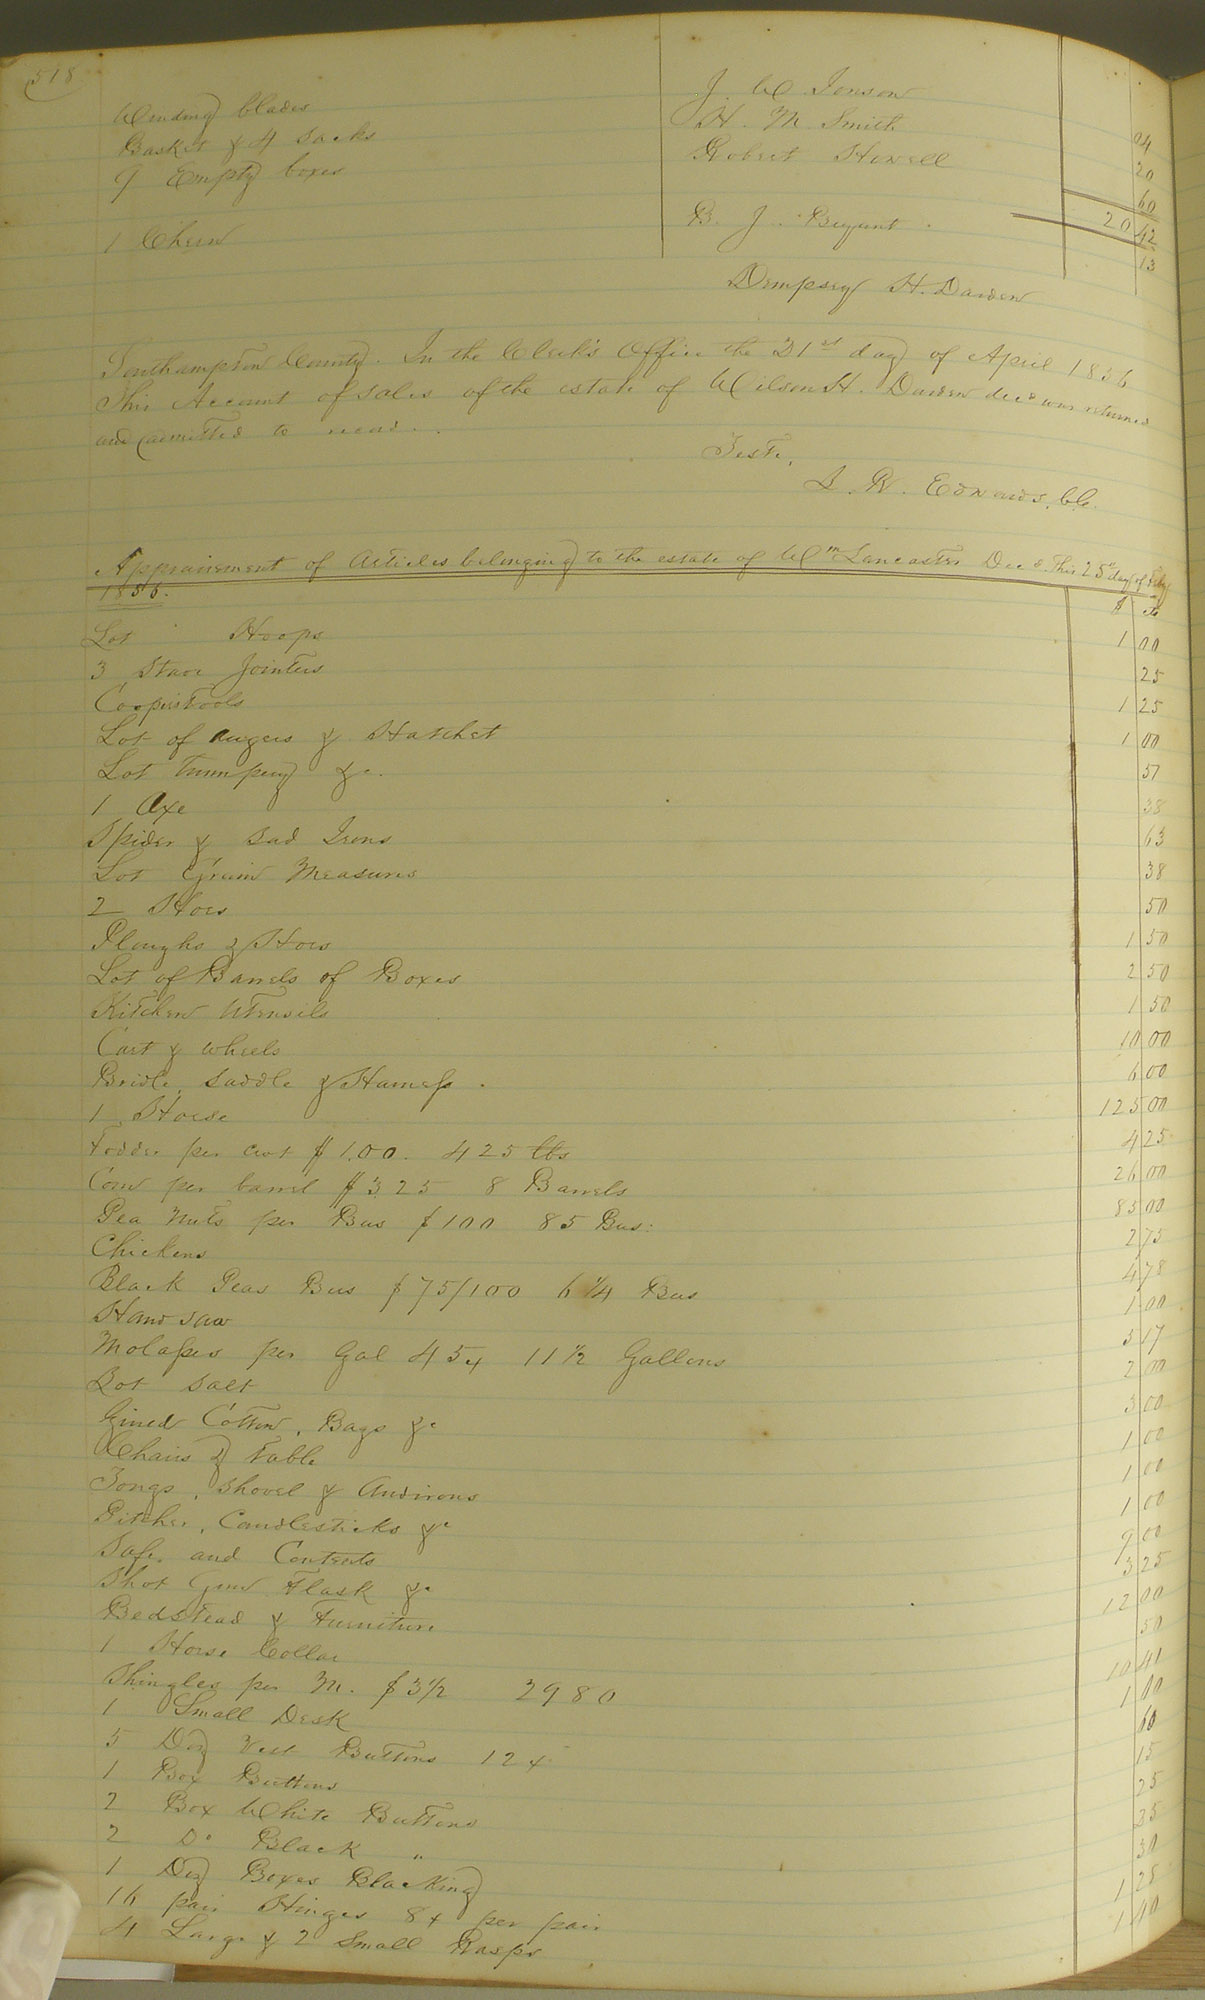 518
Winding blades J. W. Jonson 04
Basket & 4 Sacks H. M. Smith 20
9 Empty boxes Robert Howell 60
20 42
1 Chern B. J. Bryant. 13
Dempsey H. Darden
Southampton County. In the Clerk's Office the 21st day of April 1856
This Account of sales of the estate of Wilson H. Darden decd was returned
and admitted to record..
Teste,
L. R. Edwards, Clk.
Appraisement of Articles belonging to the estate of Wm Lancaster Decd This 25th day of Feby
1856. $ cts
Lot Hoops 1 00
3 Stave Jointers 25
Coopers Tools 1 25
Lot of Augers & Hatchet 1 00
Lot Trumpery &c. 50
1 Axe 38
Spider & Sad Irons 63
Lot Grain Measures 38
2 Hoes 50
Ploughs & Hoes 1 50
Lot of Barrels of Boxes 2 50
Kitchen Utensils 1 50
Cart & wheels 10 00
Bridle, Saddle & Harness. 6 00
1 Horse 125 00
Fodder per cwt $1.00. 425 lbs 4 25
Corn per barrel $325 8 Barrels 26 00
Pea Nuts per Bus $100 85 Bus: 85 00
Chickens 2 75
Black Peas Bus $75/100 6 1/4 Bus 4 78
Hand saw 1 00
Molasses per Gal 45 11 1/2 Gallons 5 17
Lot Salt 2 00
Gined Cotton, Bags &c 3 00
Chairs & Table 1 00
Tongs, Shovel & Andirons 1 00
Pitcher, Candlesticks &c 1 00
Safe, and Contents 9 00
Shot Gun Flask &c 3 25
Bedstead & Furniture 12 00
1 Horse Collar 50
Shingles per M. $3 1/2 2980 10 41
1 Small Desk 1 00
5 Doz Vest Buttons 12 60
1 Box Buttons 15
2 Box White Buttons 25
2 Do Black " 35
1 Doz Boxes Blacking 30
16 pair Hinges 8 per pair 1 28
4 Large & 2 Small Rasps 1 40